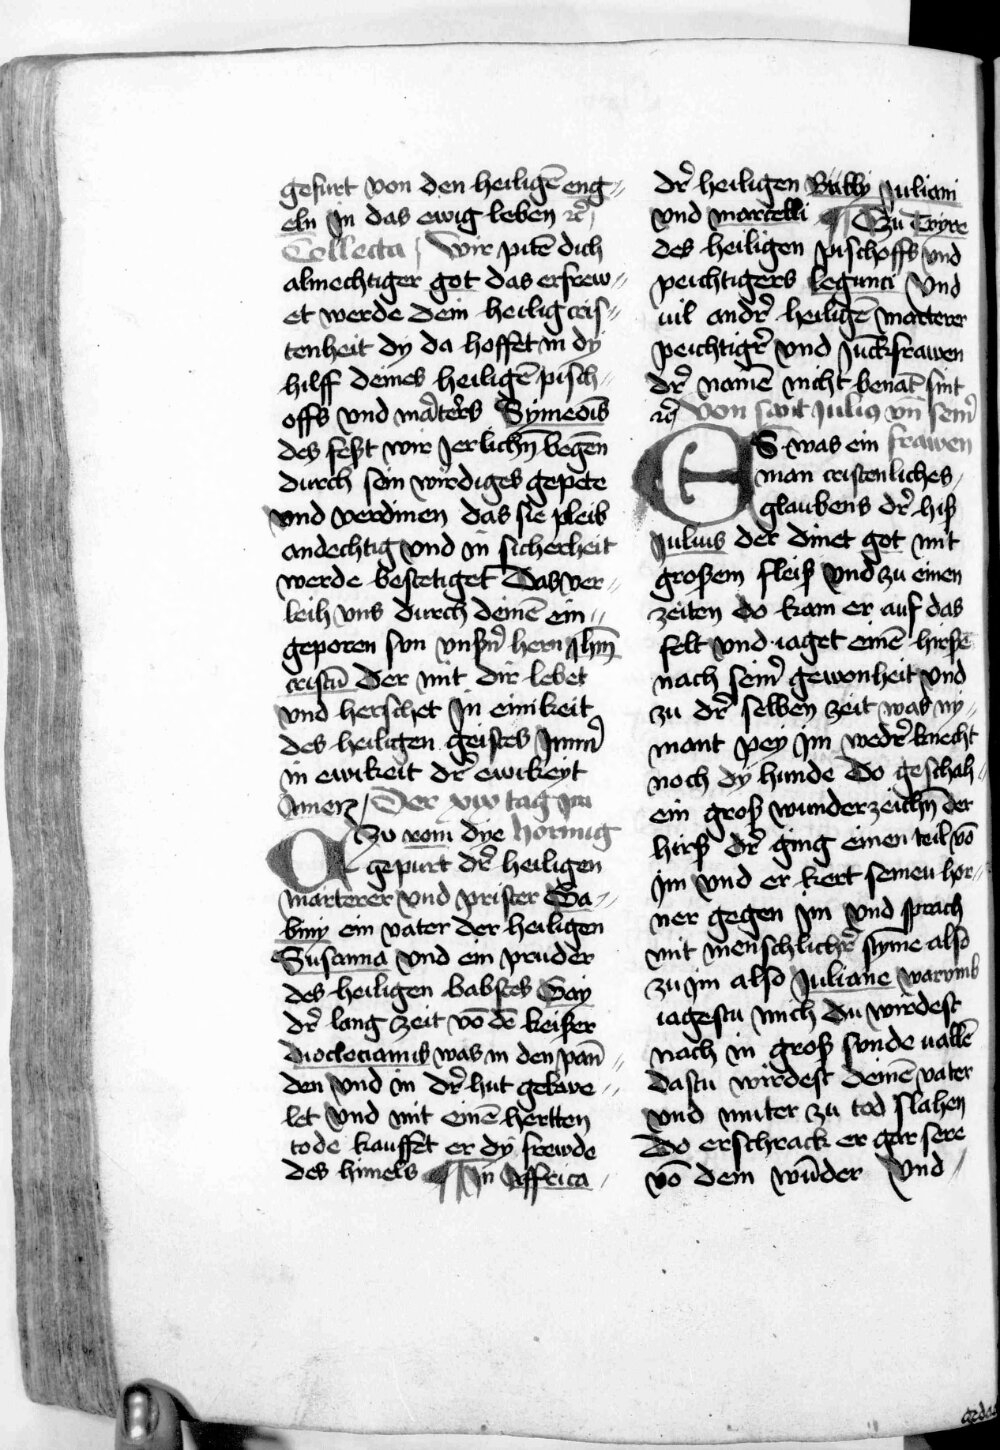 gefurt von den heiligē eng⸗
eln in das ewig leben ꝛc̄
Collecta / Wir pitē dich
almechtiger got das erfrew⸗
et werde dein heilig cris⸗
tenheit dy da hoffet in dy
hilff deines heiligē pisch⸗
offs und mart̓ers Symeōis
des fest wir Jerlichn̄ begēn
durch sein wirdiges gepete
und verdinen das sie pleib
andechtig und in sicherheit
werde bestetiget Das ver⸗
leih uns durch deinē ein⸗
geporen sun unsn̓ hern Jhm̄
cristū Der mit dir lebet
und herschet in einikeit
des heiligen geistes Jmm̓
in ewikeit dr̓ ewikeyt
Amen / Der xix tag im
Zu rom dye hornug
gepurt dr̓ heiligen
marterer und prister Ga⸗
biny ein vater der heiligen
Susanna und ein pruder
des heiligen babstes Gay
dr̓ lang zeit vō dē keiser
dioclecianus was in den pan̄⸗
den und in dr̓ hut gekwe⸗
let und mit einē hertten
tode kauffet er dy frewde
des himels ¶ In Affrica
dr̓ heiligen Bably Juliani
und marcelli ¶ Zu Tryre
des heiligen pischoffs und
peichtigers legunci und
vil andr̓ heiligē marterer
peichtigr̓ und Junckfrawen
dr̓ namē nicht benāt sint
ꝛc̄ Von sant Julio un̄ sein̓
ES was ein frawen
man cristenliches
glaubens dr̓ hiß
Julius der dinet got mit
großem fleiß und zu einen
zeiten do kam er auf das
felt und iaget einē hirßē
nach sein̓ gewonheit und
zu dr̓ selben zeit was ny⸗
mant pey im wedr̓ knecht
noch dy hunde Do geschah
ein groß wunderzeichn̄ der
hirß dr̓ ging einen teil vō
im und er kert seinen hor⸗
ner gegen im und sprach
mit menschlichr̓ styme also
zu im also Juliane warumb
iagestu mich du wirdest
nach in groß sunde vallē
dastu wirdest deinē vater
und muter zu tod slahen
Do erschrack er gar sere
vō dem wūder und